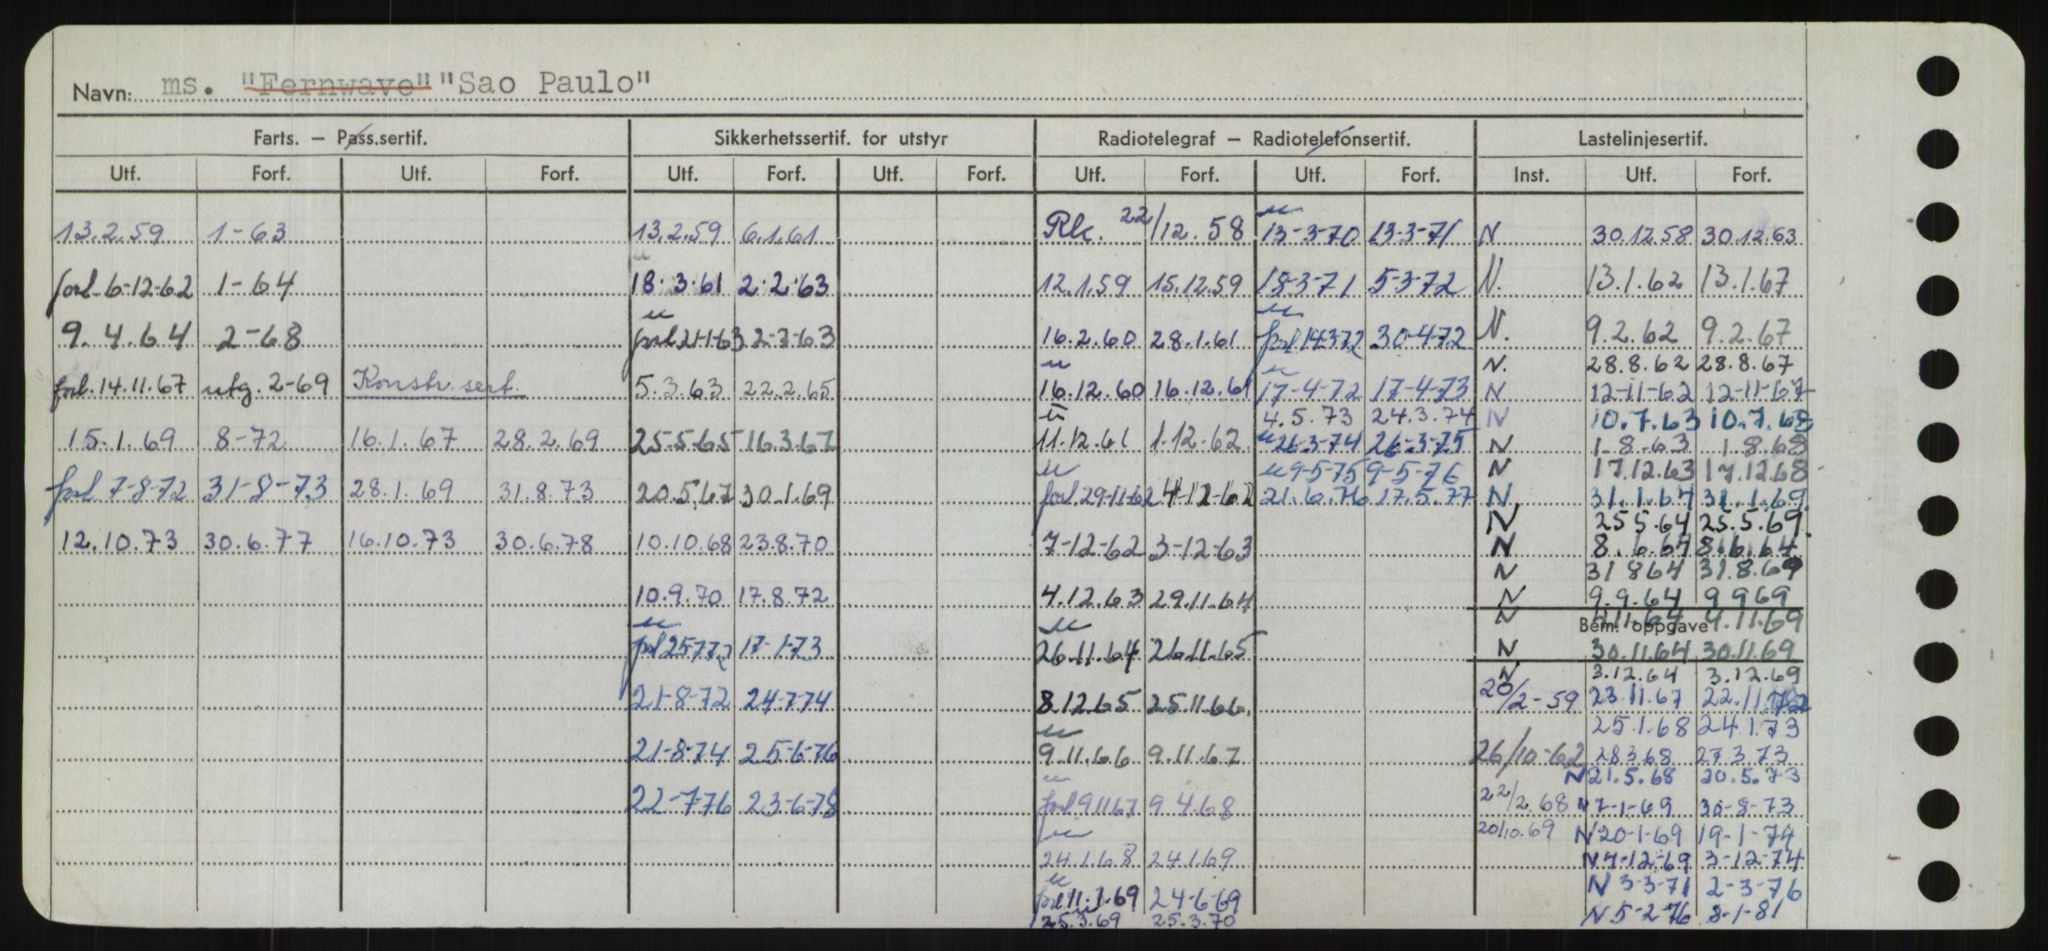 Navn: ms. "Fernwave" "Sao Paulo"
Farts. — Pass.sertif. Sikkerhetssertif. for utstyr Radiotelegraf — Radiotelefonsertif. Lastelinjesertif.
Utf. Forf. Utf. Forf. Utf. Forf. Utf. Forf. Utf. Forf. Utf. Forf. Inst. Utf. Forf.
13.2.59 1-63 13.2.59 6.1.61 Rk. 22/12.58 13-3-70 13-3-71 N 30.12.58 30.12.63
forl 6-12-62 1-64 18.3.61 2.2.63 12.1.59 15.12.59 18-3-71 5-3-72 N. 13.1.62 13.1.67
9.4.64 2-68 forl 21-1-63 2-3-63 16.2.60 28.1.61 forl 14372 30-472 N. 9.2.62 9.2.67
N. 28.8.62 28.8.67
forl. 14.11.67 utg. 2-69 Konstr. sert. 5.3.63 22.2.65 16.12.60 16.12.61 17-4-72 17-4-73 N 12-11-62 12-11-67
4.5.73 24.3.74 N 10.7.63 10.7.68
15.1.69 8-72 16.1.67 28.2.69 25.5.65 16.3.67 11.12.61 1.12.62 26-3-74 26-3-75 N 1.8.63 1.8.68
9-5-75 9-5-76 N 17.12.63 17.12.68
forl 7-8-72 31-8-73 28.1.69 31.8.73 20.5.67 30.1.69 forl 29-11-62 4-12-62 21.6.76 17.5.77 N. 31.1.64 31.1.69.
N 25.5.64 25.5.69
12.10.73 30.6.77 16.10.73 30.6.78 10.10.68 23.8.70 7-12-62 3-12-63 N 8.6.64 8.6.64
N 31 8 64 31.8.69
10.9.70 17.8.72 4.12.63 29.11.64 N 9.9.64 9 9 69
N 4.11.64 4.11.69
Bem. oppgave
forl 25772 17-1-73 26.11.64 26.11.65 N 30.11.64 30.11.69
N 3.12.64 3.12.69
21-8-72 24-7-74 8.12.65 25.11.66. 20/2-59 23.11.67 22.11.72
25.1.68 24.1.73
21-8-74 25-6-76 9.11.66 9.11.67 26/10-62 28.3.68 27.3.73
N 21.5.68 20.5.73
22-7-76 23-6-78 forl 9.11.67 9.4.68 22/2.68 N 7-1-69 30-8-73
20/10.69 N 20-1-69 19-1-74
24.1.68 24.1.69 N 4-12-69 3-12-74
forl 11.1.69 24-6-69 N 3-3-71 2-3-76
25.3.69 25.3.70 N 5-2-76 8-1-81